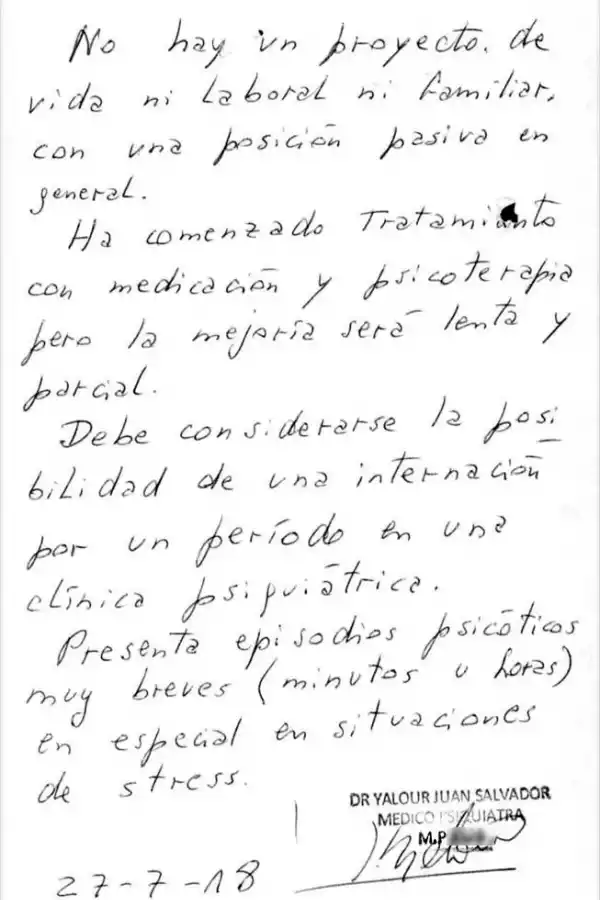 No hay un proyecto. de
vida ni laboral ni familiar,
con una posición pasiva en
general.
Ha comenzado Tratamiento
con medicación y psicoterapia
pero la mejoría será lenta y
parcial.
Debe considerarse la posi
bilidad de una internación
por un período en una
clínica psiquiátrica.
Presenta episodios psicóticos
muy breves (minutos u horas)
en especial en situaciones
de stress.
DR YALOUR JUAN SALVADOR
MEDICO PSIQUIATRA
M.P
27-7-18